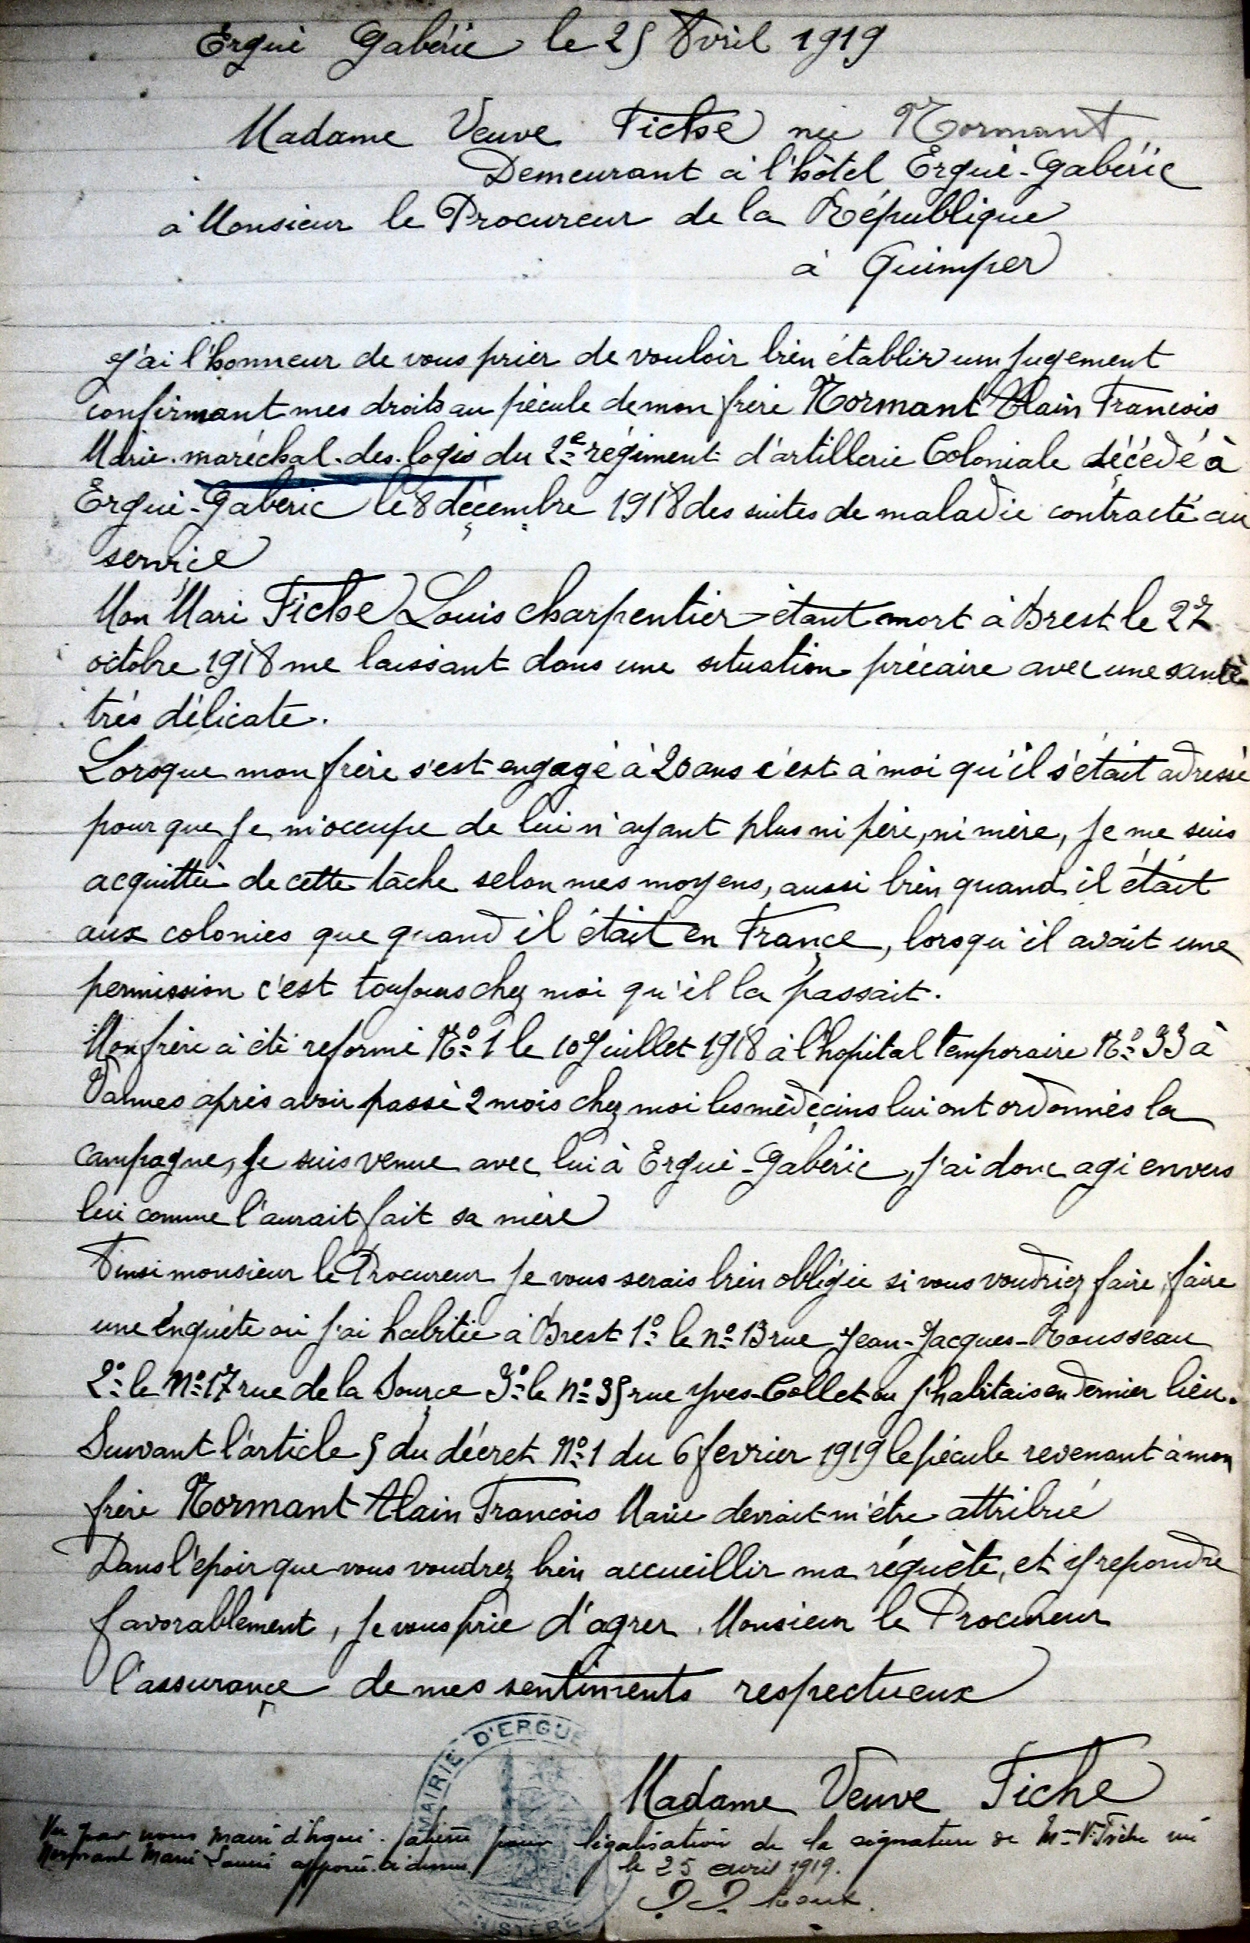 Ergué Gabéric le 25 Avril 1919
Madame Veuve Fiche née Normant
Demeurant à l'hôtel Ergué-Gabéric
à Monsieur le Procureur de la République
à Quimper
J'ai l'honneur de vous prier de vouloir bien établir un jugement
confirmant mes droits au pécule de mon frère Normant Alain François
Marie maréchal des logis du 2e régiment d'artillerie Coloniale décédé à
Ergué-Gabéric le 8 décembre 1918 des suites de maladie contracté au
service
Mon Mari Fiche Louis charpentier étant mort à Brest le 27
octobre 1918 me laissant dans une situation précaire avec une santé
trés délicate.
Lorsque mon frère s'est engagé à 20 ans c'est à moi qu'il s'était adressé
pour que je m'occupe de lui n'ayant plus ni père, ni mère, je me suis
acquittée de cette tâche selon mes moyens, aussi bien quand il était
aux colonies que quand il était en France, lorsqu'il avait une
permission c'est toujours chez moi qu'il la passait.
Mon frère à été reformé No 1 le 10 Juillet 1918 à l'hopital temporaire No 33 à
Vannes après avoir passé 2 mois chez moi les médecins lui ont ordonnés la
campagne, je suis venue avec lui à Ergué-Gabéric, j'ai donc agi envers
lui comme l'aurait fait sa mère
Ainsi monsieur le Procureur je vous serais bien obligée si vous voudriez faire faire
une enquête où j'ai habitée à Brest 1o le no 13 rue Jean-Jacques-Rousseau
2o le No 17 rue de la Source 3o le No 35 rue Yves-Collet ou j'habitais en dernier lieu.
Suivant l'article 5 du décret No 1 du 6 fevrier 1919 le pécule revenant à mon
frère Normant Alain François Marie devrait m'être attribué
Dans l'époir que vous voudrez bien accueillir ma réquête, et y repondre
favorablement, je vous prie d'agrer Monsieur le Procureur
l'assurance de mes sentiments respectueux
MAIRIE D'ERGUÉ
FINISTÈRE
Madame Veuve Fiche
Vu par nous maire d'Ergué-Gabéric pour légalisation de la signature de Mme Vve Fiche née
Normant Marie Louise apposée ci dessus
le 25 avril 1919.